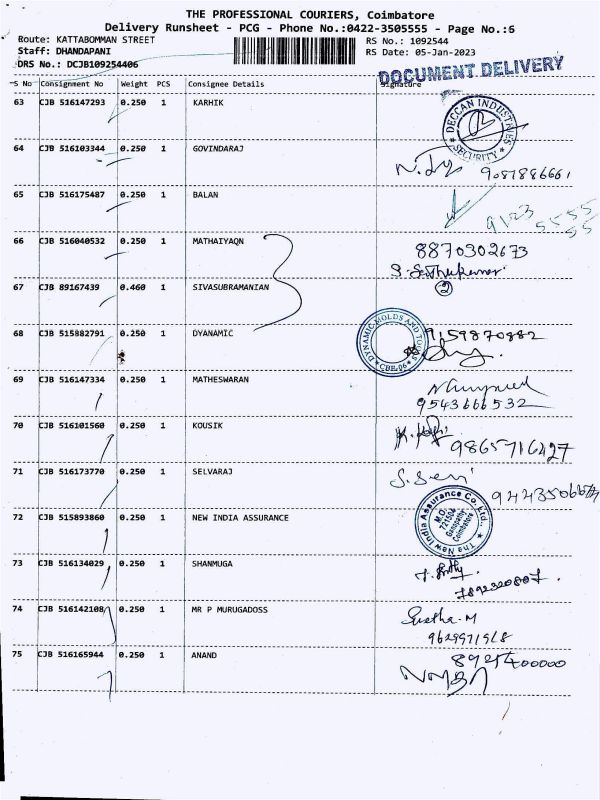 THE PROFESSIONAL COURIERS, Coimbatore
Delivery Runsheet - PCG - Phone No.:0422-3505555 - Page No.:6
Route: KATTABOMMAN STREET RS No.: 1092544
Staff: DHANDAPANI RS Date: 05-Jan-2023
DRS No.: DCJB109254406
DOCUMENT DELIVERY
S No Consignment No Weight PCS Consignee Details Signature
63 CJB 516147293 0.250 1 KARHIK
DECCAN INDUSTRIES SECURITY
64 CJB 516103344 0.250 1 GOVINDARAJ
9087886661
65 CJB 516175487 0.250 1 BALAN
9123 5555 55
66 CJB 516040532 0.250 1 MATHAIYAQN 8870302673
67 CJB 89167439 0.460 1 SIVASUBRAMANIAN 2
68 CJB 515882791 0.250 1 DYANAMIC 9159870882
DYNAMIC MOLDS AND TOOLS CBE-06
69 CJB 516147334 0.250 1 MATHESWARAN
9543666532
70 CJB 516101560 0.250 1 KOUSIK
9865716427
71 CJB 516173770 0.250 1 SELVARAJ
72 CJB 515893860 0.250 1 NEW INDIA ASSURANCE
The New India Assurance Co. Ltd.,
M.O. 721504
Ganapathy
Coimbatore
73 CJB 516134029 0.250 1 SHANMUGA
7892320807
74 CJB 516142108 0.250 1 MR P MURUGADOSS
9629971968
75 CJB 516165944 0.250 1 ANAND 8925400000